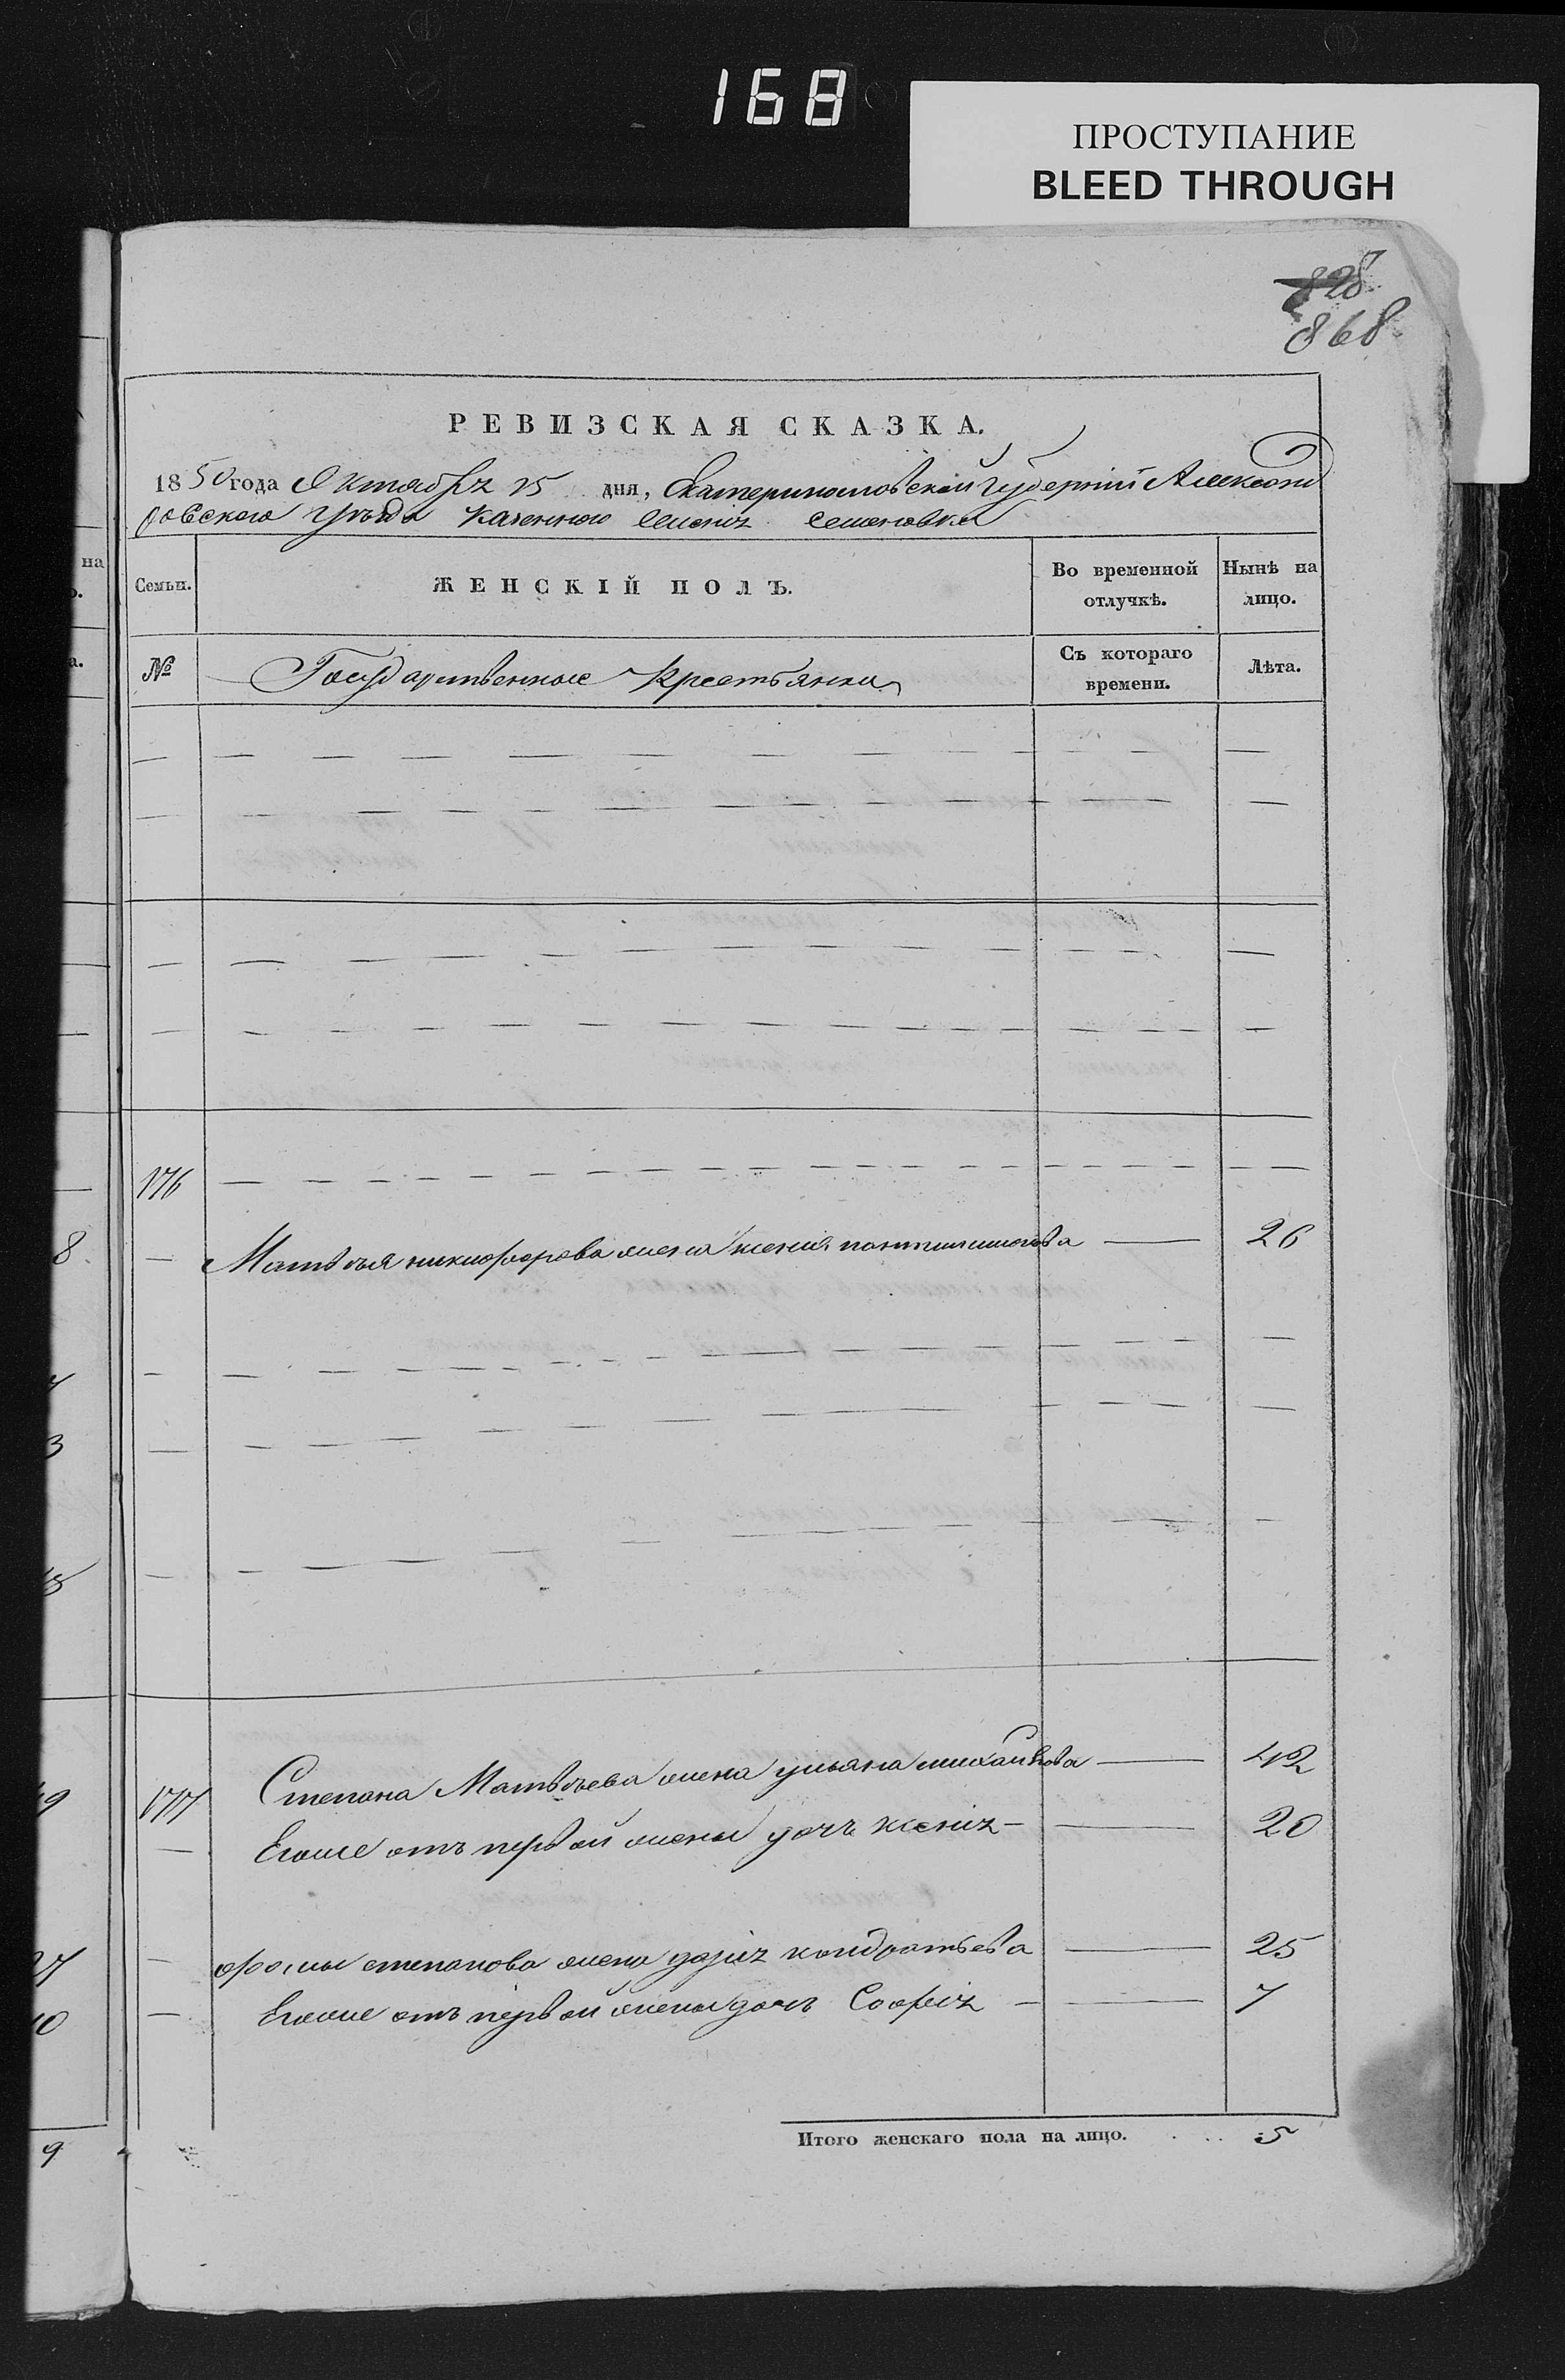 168
ПРОСТУПАНИЕ
BLEED THROUGH
828
868
РЕВИЗСКАЯ СКАЗКА.
1850 года Октября 25 дня, Екатеринославской губернии Александ
ровского уѣзда казенного селенія Семеновки
Семьи. ЖЕНСКІЙ ПОЛЪ. Во временной отлучкѣ. Нынѣ на лицо.
№ Государственные крестьянки Съ котораго времени. Лѣта.
176
Матвѣя никифорова жена ксенія 26
177 Степана Матвѣева жена ульяна михайлова 42
Егоже отъ первой жены дочь ксенія 20
фомы степанова жена дарія кондратьева 25
Егоже отъ первой жены дочь Софія 7
Итого женскаго пола на лицо. 5
на
о.
а.
8
3
9
27
10
9